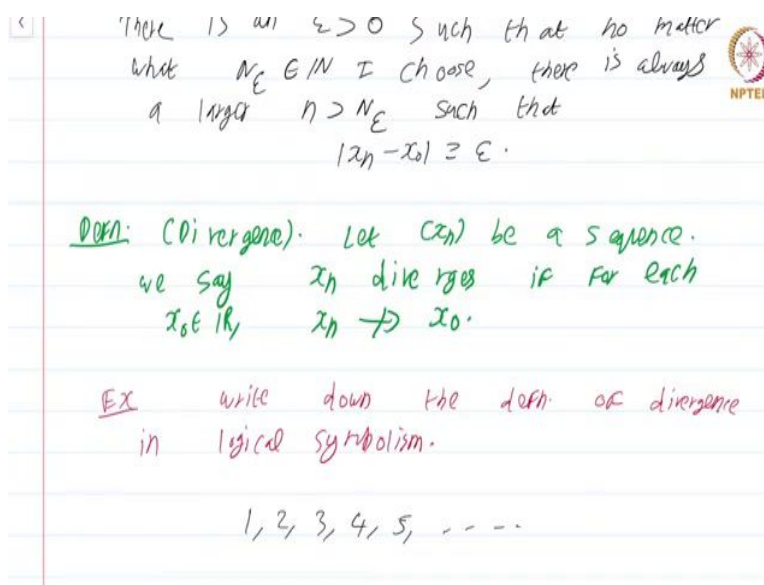 There is an ε>0 such that no matter
what N_ε ∈ ℕ I choose, there is always
a larger n > N_ε such that
|x_n - x_0| ≥ ε.
NPTEL
Defn: (Divergence). Let (x_n) be a sequence.
we say x_n diverges if for each
x_0 ∈ ℝ, x_n ↛ x_0.
Ex write down the defn. of divergence
in logical symbolism.
1, 2, 3, 4, 5, .....